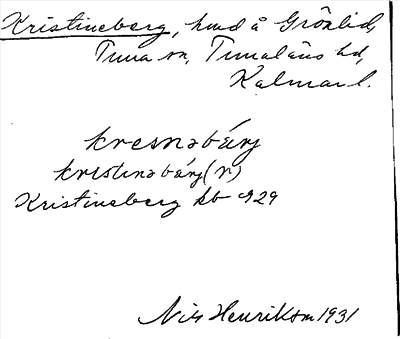 Kristineberg, hmd å Grönlid,
Tuna sn, Tunaläns hd,
Kalmar l.
kresnəbärj
kristinəbärj (r)
Kristineberg kb 929
Nils Henrikson 1931